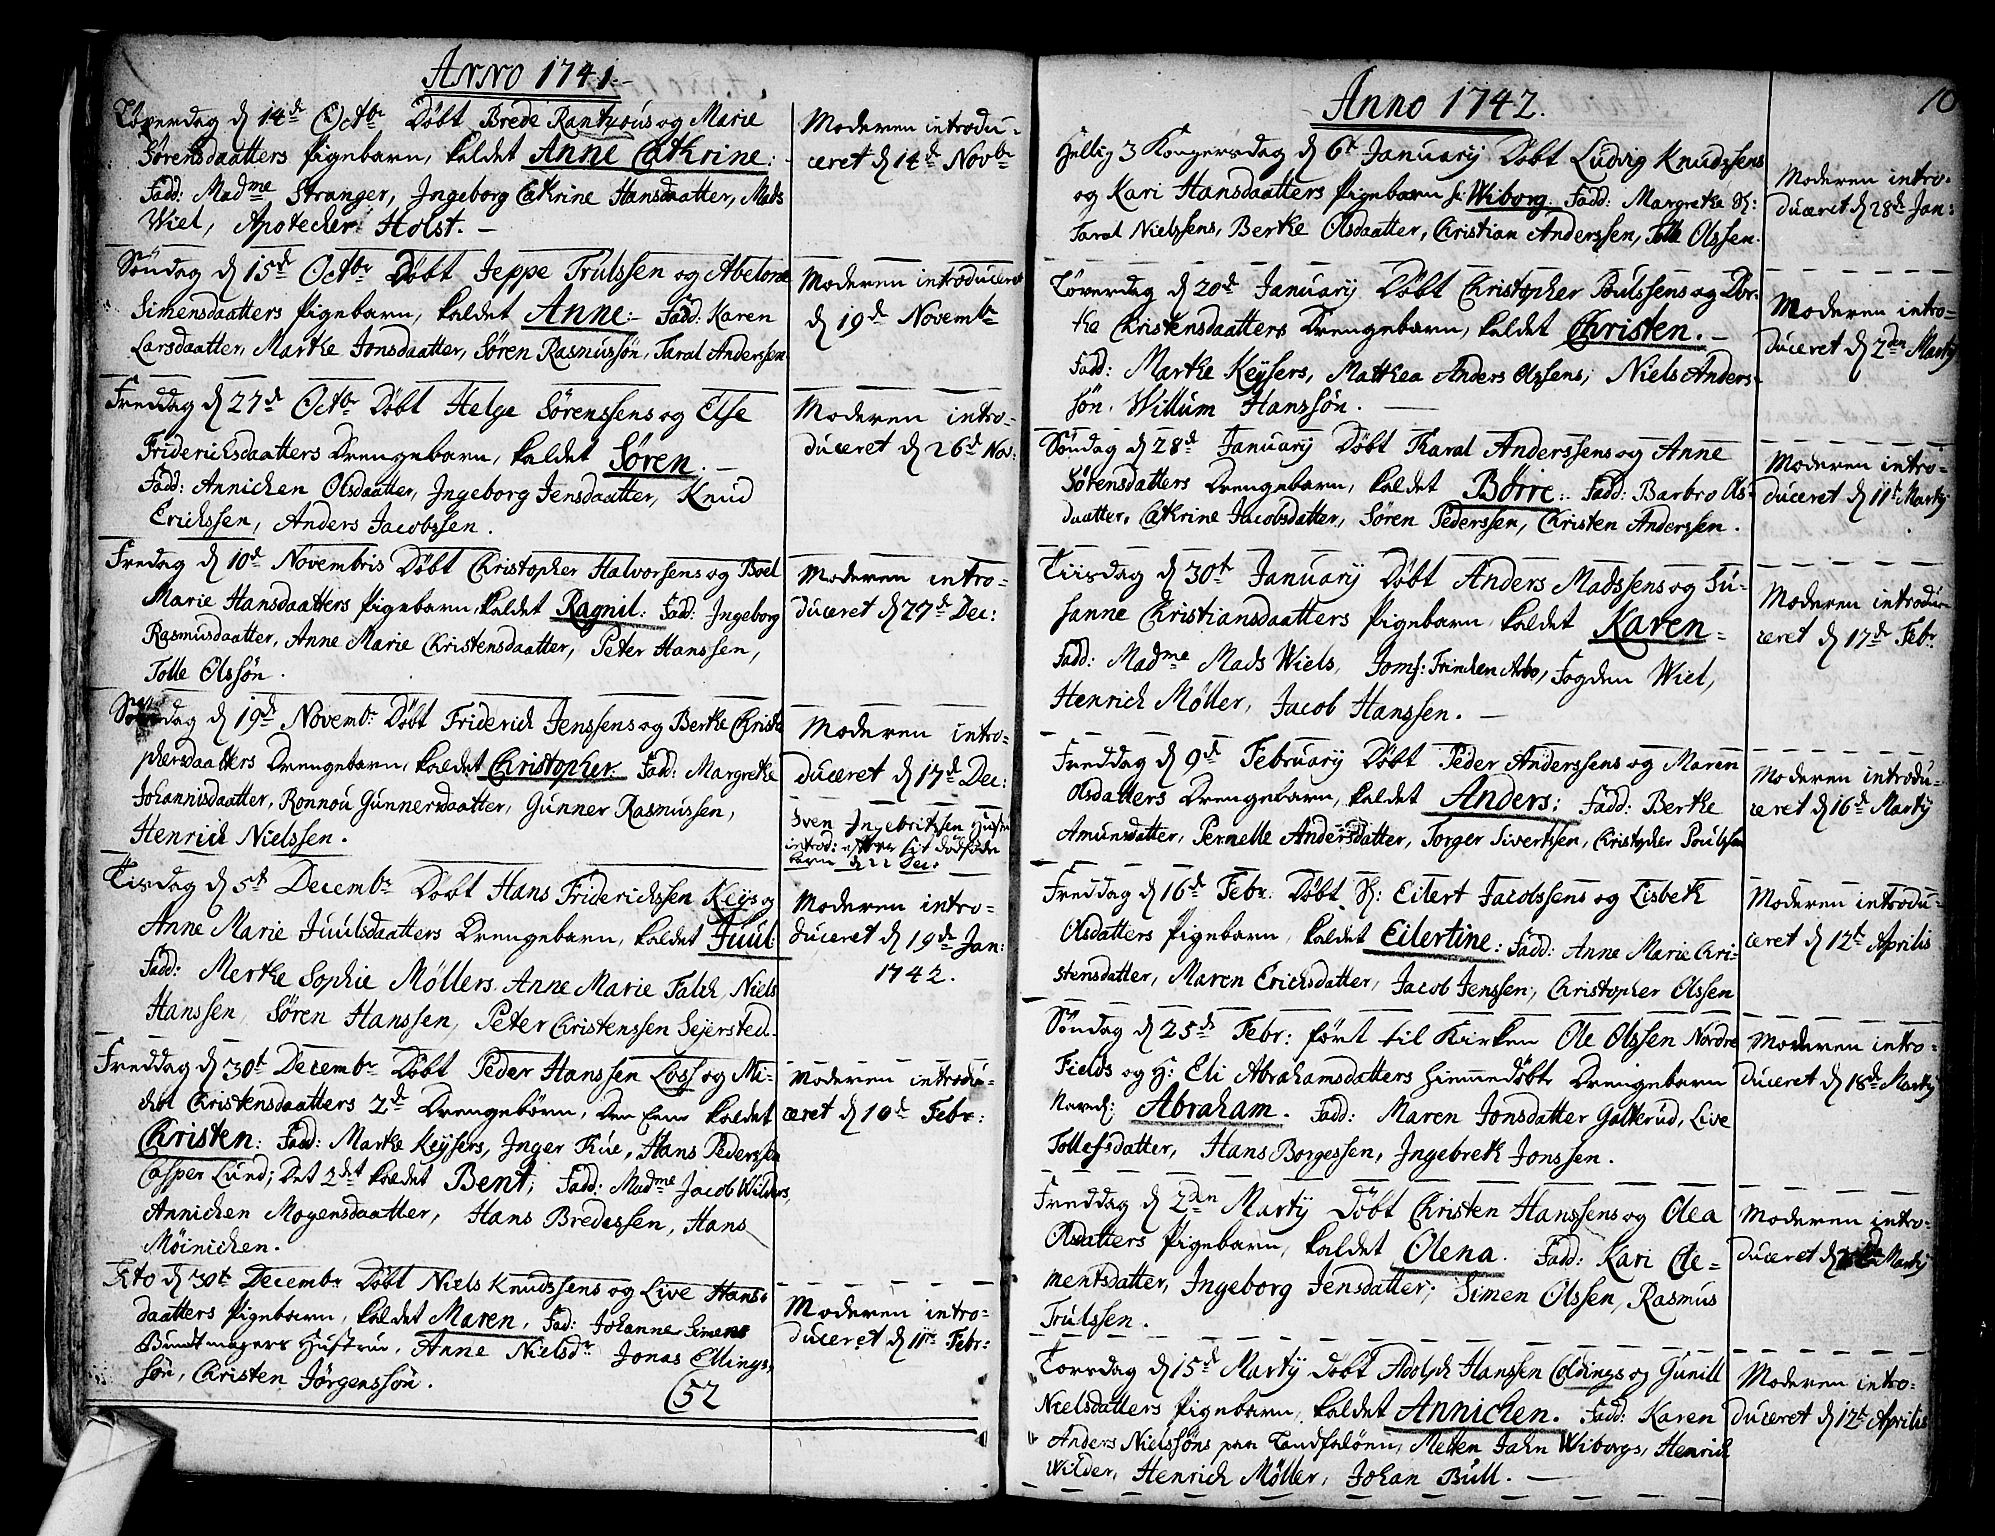 Anno 1741.
Løverdag d 14de Octbr Døbt Brede Rantzous og Marie
Sørensdaatters Pigebarn, kaldet Anne Cathrine:
Fadd: Madme Stranger, Ingeborg Cathrine Hansdaatter, Mads
Wiel, Apotecher Holst. —
Moderen introdu-
ceret d 14de Novbr
Søndag d 15de Octbr Døbt Jeppe Trulssen og Abelone
Simensdaatters Pigebarn, kaldet Anne: Fadd: Karen
Larsdaatter, Marthe Jonsdaatter, Søren Rasmussøn, Taral Anderssen
Moderen introduceret
d 19de Novembr
Freddag d 27de Octbr Døbt Helge Sørenssens og Else
Friderichsdaatters Drengebarn, kaldet Søren. —
Fadd: Annichen Olsdaatter, Ingeborg Jensdaatter, Knud
Erichssen, Anders Jacobssen.
Moderen intro-
duceret d 26de Nov:
Fredag d 10de Novembris Døbt Christopher Halvorsens og Boel
Marie Hansdaatters Pigebarn, kaldet Ragnil: Fadd: Ingeborg
Rasmusdaatter, Anne Marie Christensdaatter, Peter Hanssen,
Tolle Olssøn.
Moderen intro-
duceret d 27de Dec:
Søndag d 19de Novembr Døbt Friderich Jenssens og Berthe Christo
phersdaatters Drengebarn, kaldet Christopher. Fadd: Margrethe
Johannisdaatter, Ronnou Gunnersdaatter, Gunner Rasmussen,
Henrich Nielssen.
Moderen intro-
duceret d 17de Dec:
Iven Ingebritssen Hustru
introd: efter sit dødfødde
barn d 22 Dec:
Tisdag d 5te Decembr Døbt Hans Friderichssen Keys og
Anne Marie Juulsdaatters Drengebarn, kaldet Juul:
Fadd: Merthe Sophie Møllers, Anne Marie Falch, Niels
Hanssen, Søren Hanssen, Peter Christenssen Sejersted.
Moderen intro-
duceret d 19de Jan:
1742.
Freddag d 30te Decembr Døbt Peder Hanssen Loss og Mi-
chel Christensdaatters 2de Drengebørn, Den Eene kaldet
Christen: Fadd: Marthe Keysers, Inger Thue, Hans Pederssen
Casper Lund; Det 2det kaldet Bent; Fadd: Madme Jacob Wilders,
Annichen Mogensdaatter, Hans Bredessen, Hans
Möinichen.
Moderen introdu-
ceret d 10de Febr:
Dito d 30te Decembr Døbt Niels Knudssens og Live Hans-
daatters Pigebarn, kaldet Maren, Fad: Johanne Simens
Bundtmagers Hustrue, Anne Nielsdr Jonas Ellings-
søn, Christen Jørgenssøn.
52
Moderen intro-
duceret d 11te Febr:
10
Anno 1742.
Hellig 3 Kongersdag d 6te January Døbt Ludvig Knudssens
og Kari Hansdaatters Pigebarn k: Wiborg. Fadd: Margrethe Sr:
Taral Nielssens, Berthe Olsdaatter, Christian Anderssen, Tolle Olssen.
Moderen intro-
duceret d 28de Jan:
Løverdag d 20de January Døbt Christopher Poulssens og Dor-
the Christensdaatters Drengebarn, kaldet Christen. —
Fadd: Marthe Keysers, Matthea Anders Olssens, Niels Anders-
søn, Willum Hanssøn. —
Moderen intro-
duceret d 2den Marty
Søndag d 28de January Døbt Tharal Anderssens og Anne
Sørensdatters Drengebarn, kaldet Børre: Fadd: Barbro Ols-
daatter, Cathrine Jacobsdatter, Søren Pederssen, Christen Anderssen.
Moderen intro-
duceret d 11te Marty
Tiisdag d 30te January Døbt Anders Madssens og Su-
sanne Christiansdaatters Pigebarn, kaldet Karen-
Fadd: Madme Mads Wiels, Jomf: Trinchen Arbo, Fogden Wiel,
Henrich Möller, Jacob Hanssen. —
Moderen introdu-
ceret d 17de Febr.
Freddag d 9de February Døbt Peder Anderssens og Maren
Olsdatters Drengebarn, kaldet Anders: Fadd: Berthe
Amunsdatter, Pernelle Andersdatter, Torger Sivertssen, Christopher Poulssen
Moderen introdu-
ceret d 16de Marty
Freddag d 16de Febr: Døbt Sr: Eilert Jacobssens og Lisbeth
Olsdatters Pigebarn, kaldet Eilertine: Fadd: Anne Marie Chri-
stensdatter, Maren Erichsdatter, Jacob Jenssen, Christopher Olssen
Moderen introdu-
ceret d 12te Aprilis
Søndag d 25de Febr: ført til Kirken Ole Olssen Nordre
Fields og H: Eli Abrahamsdatters hiemmedøbte Drengebarn
Navnl: Abraham. Fadd: Maren Jonsdatter Galterud, Live
Tollefsdatter, Hans Borgessen, Ingebreth Jonssen.
Moderen intro-
duceret d 18de Marty
Freddag d 2den Marty Døbt Christen Hanssens og Olea
Olsdatters Pigebarn, kaldet Olena. Fadd: Kari Cle-
mentsdatter, Ingeborg Jensdatter; Simen Olssen, Rasmus
Trulssen.
Moderen intro-
duceret d Marty
Torsdag d 15de Marty Døbt Adolph Hanssen Coldings og Gunill
Nielsdatters Pigebarn, kaldet Annichen. Fadd: Karen
Anders Nielssøns paa Landfaløen, Metten Jahn Wiborgs, Henrich
Wilder, Henrich Möller, Johan Bull. —
Moderen intro-
duceret d 12te Aprilis